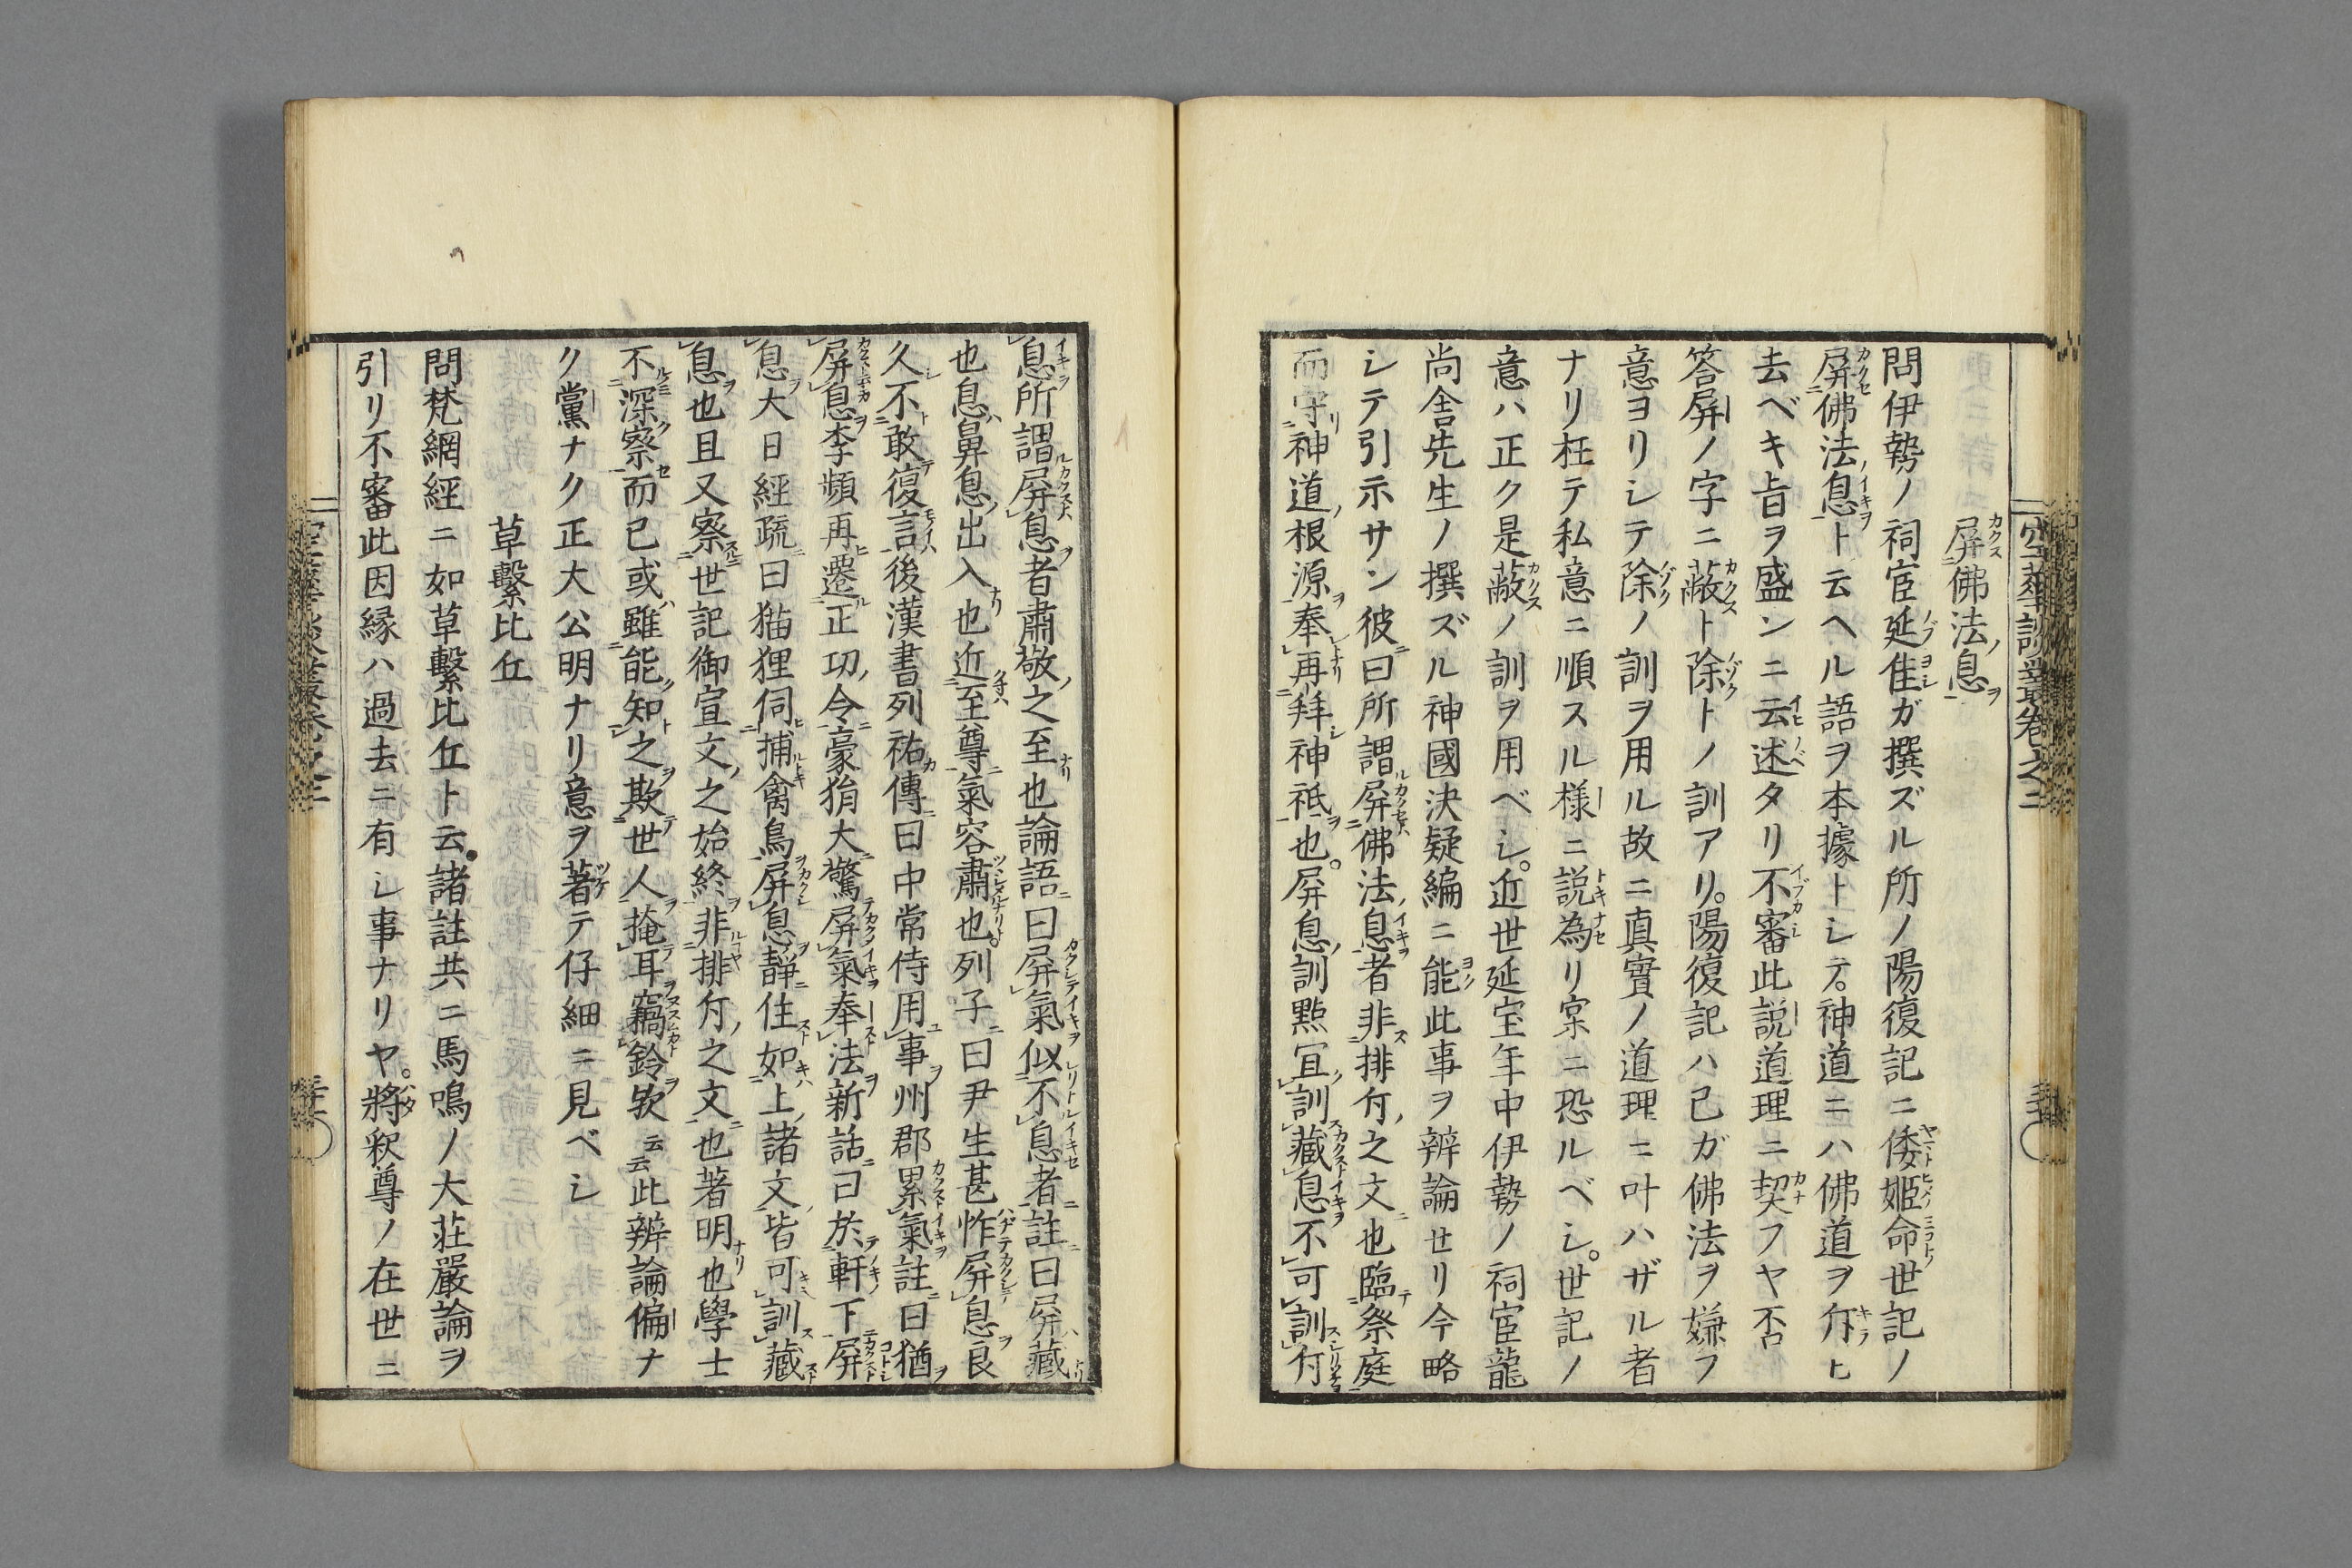 屏佛法息
問伊勢ノ祠宦延隹ガ撰ズル所ノ陽復記ニ倭姫命世記ノ
屏佛法息ト云ヘル語ヲ本據トシテ。神道ニハ佛道ヲ斥ヒ
去ベキ旨ヲ盛ンニ云述タリ不審此説道理ニ契フヤ否
答屏ノ字ニ蔽ト除トノ訓アリ。陽復記ハ己ガ佛法ヲ嫌フ
意ヨリシテ除ノ訓ヲ用ル故ニ真實ノ道理ニ叶ハザル者
ナリ枉テ私意ニ順スル様ニ説為リ寔ニ恐ルベシ。世記ノ
意ハ正ク是蔽ノ訓ヲ用ベシ。近世延宝年中伊勢ノ祠宦龍
尚舎先生ノ撰ズル神國決疑編ニ能此事ヲ辨論セリ今略
シテ引示サン彼曰所謂屏佛法息者非排斥之文也臨祭庭
而守神道根源奉再拜神祇也。屏息訓點冝訓藏息不可訓斥
息所謂屏息者肅敬之至也論語曰屏氣似不息者註曰屏藏
也息鼻息出入也近至尊氣容肅也。列子曰尹生甚怍屏息良
久不敢復言後漢書列祐傳曰中常侍用事州郡累氣註曰猶
屏息李頻再遷正功令豪猾大驚屏氣奉法新話曰於軒下屏
息大日經疏曰猫狸伺捕禽鳥屏息靜住如上諸文皆可訓藏
息也且又察世記御宣文之始終非排斥之文也著明也學士
不深察而已或雖能知之欺世人掩耳竊鈴欤云云此辨論偏ナ
ク黨ナク正大公明ナリ意ヲ著テ仔細ニ見ベシ
草繫比丘
問梵網經ニ如草繫比丘ト云。諸註共ニ馬鳴ノ大莊嚴論ヲ
引リ不審此因縁ハ過去ニ有シ事ナリヤ。將釈尊ノ在世ニ